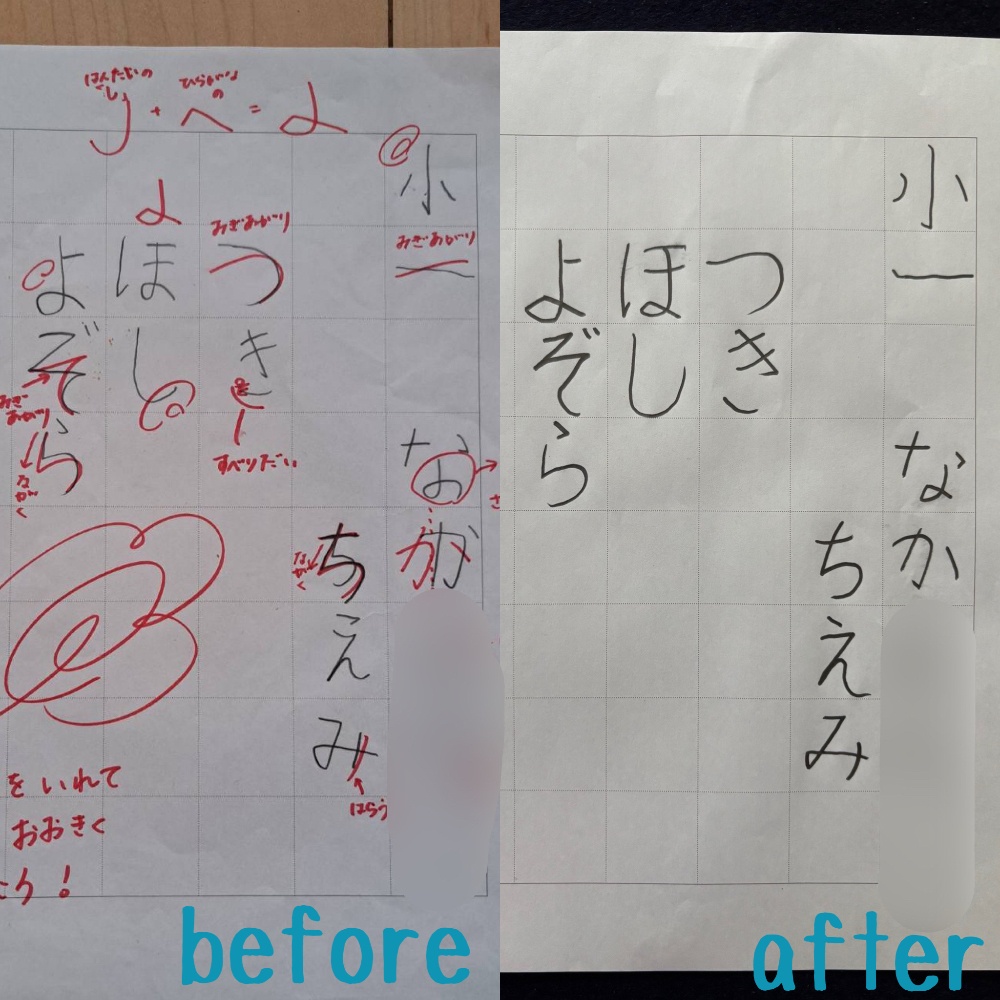 はんたいの
「し」
ひらがな
の
J + へ = よ
小
みぎあがり
一
なか
さ
か
ちえみ
ながく
はらう
みぎあがり
つき
すべりだい
ほし
よぞら
みぎ
あがり
ながく
をいれて
おおきく
う!
before
小一
なか
ちえみ
つき
ほし
よぞら
after